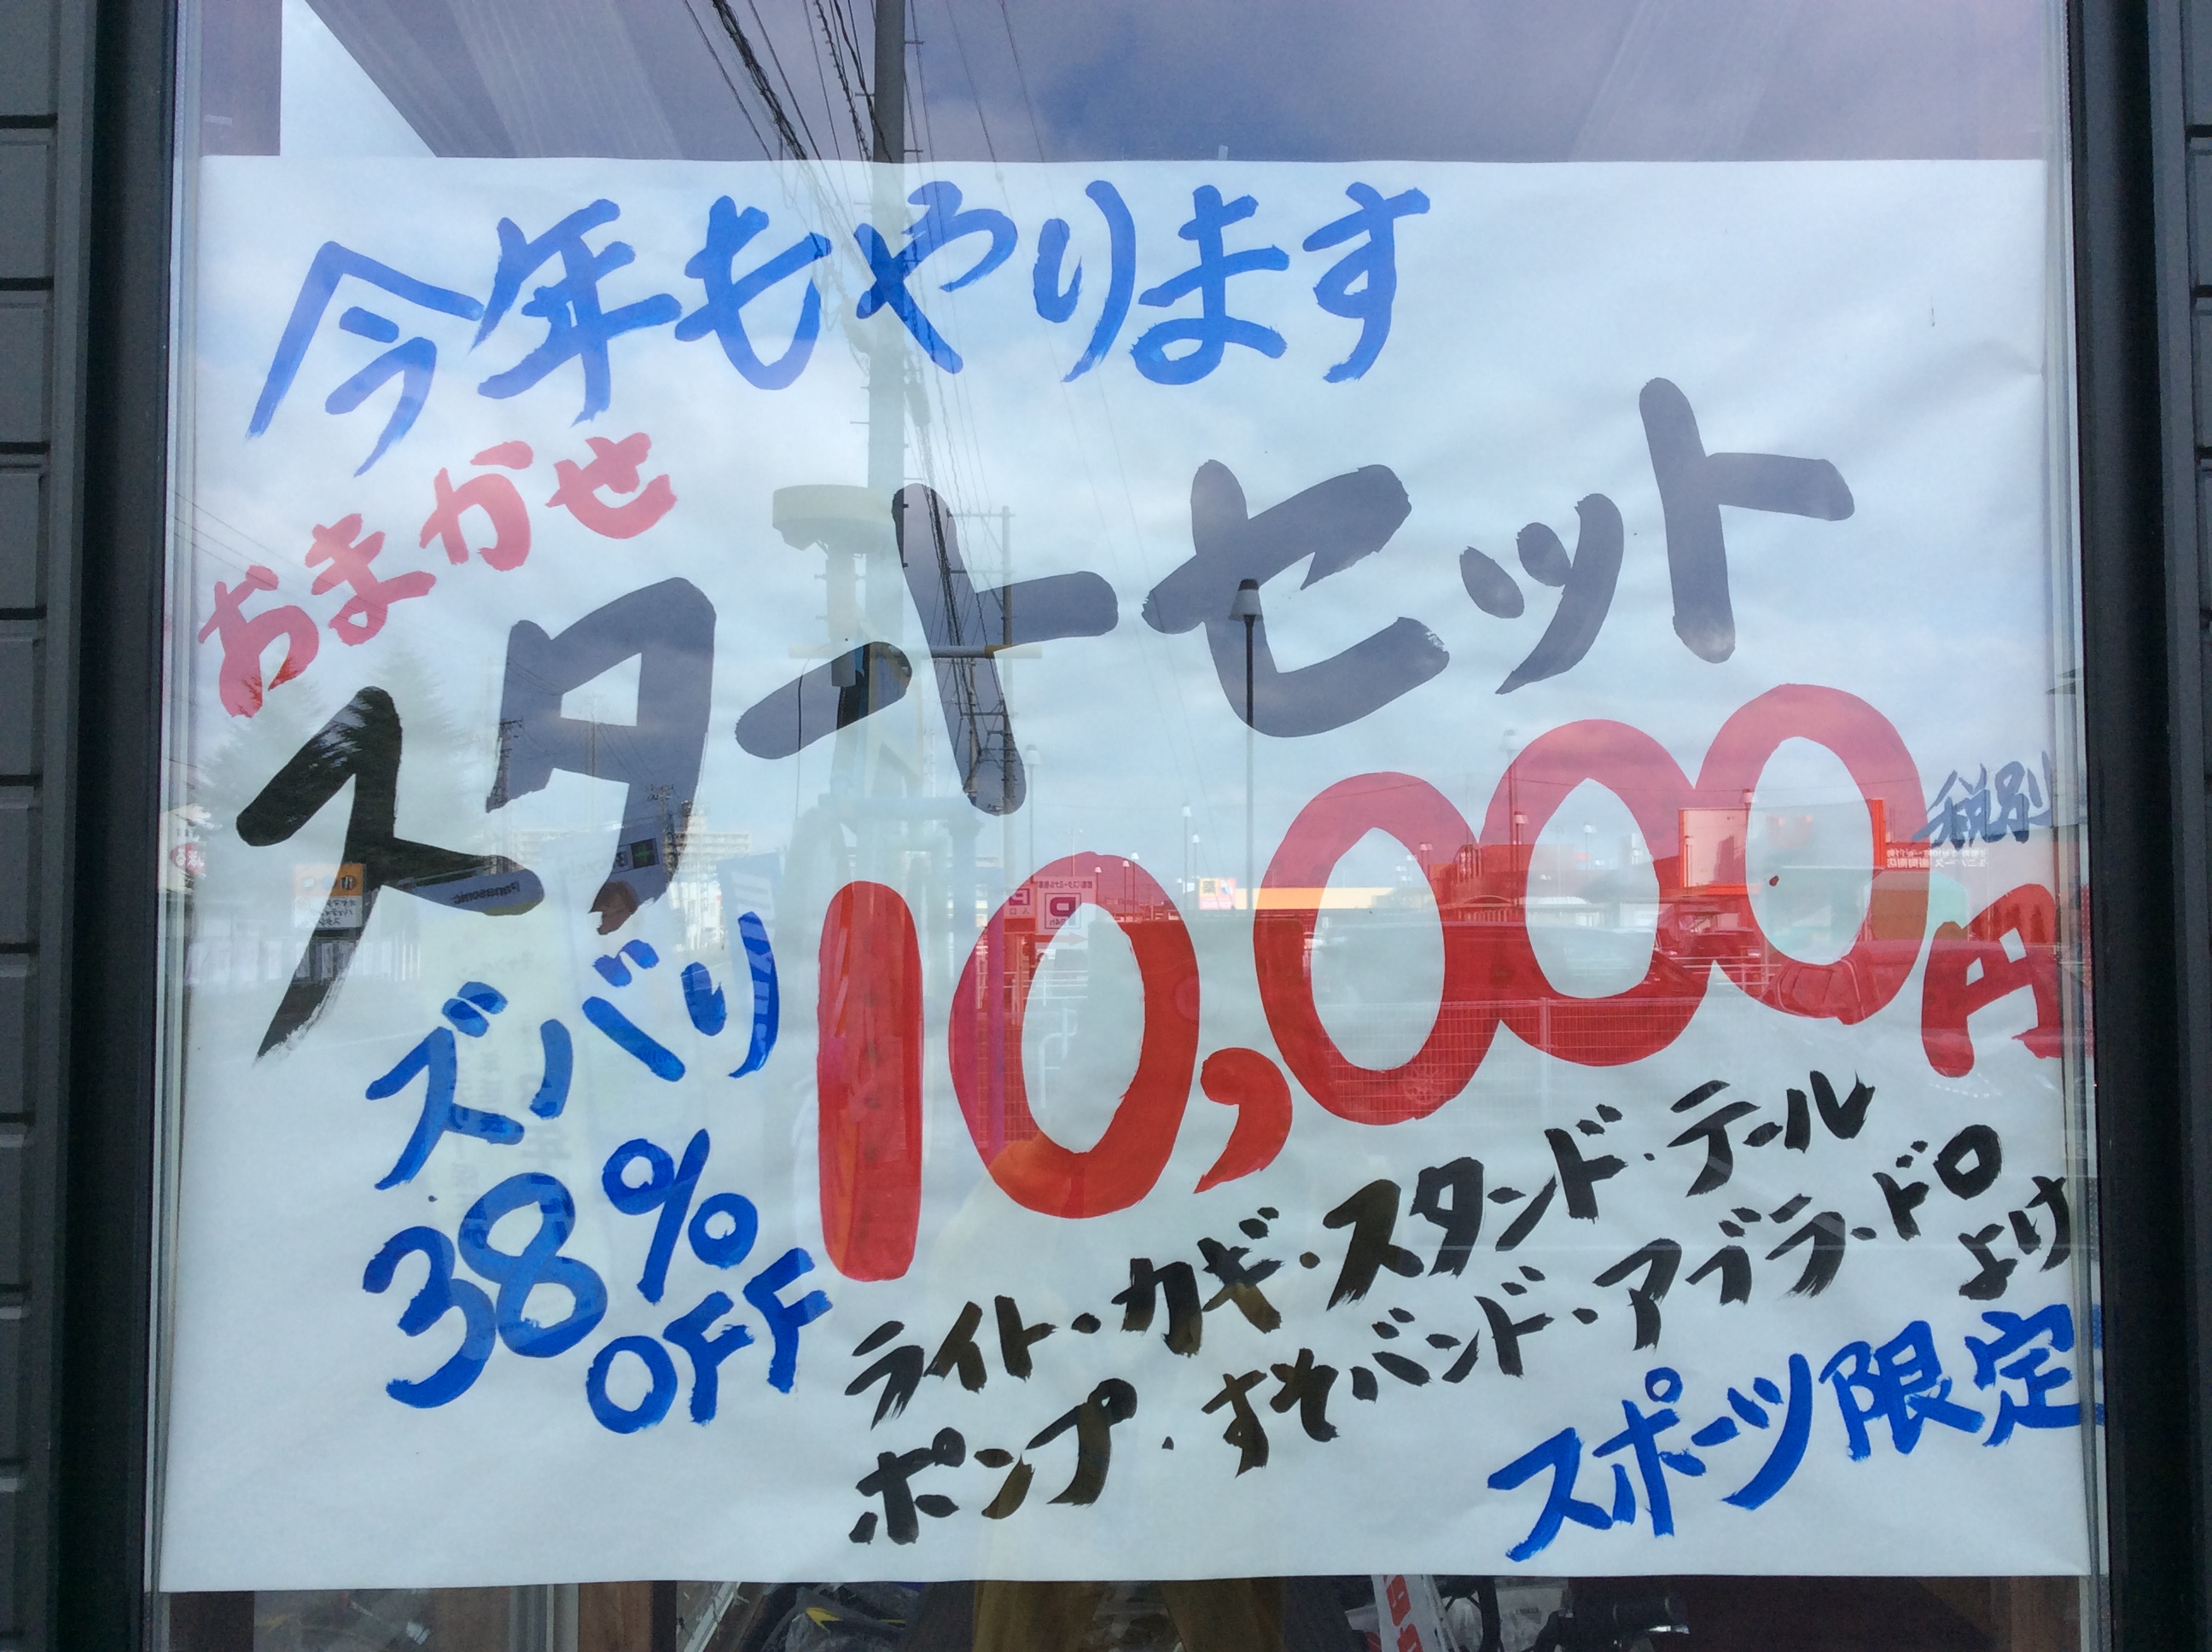 今年もやります
おまかせ
スタートセット
ズバリ
38%
OFF
10,000円
税別
ライト・カギ・スタンド・テール
ポンプ・すそバンド・アブラ・ドロ
よけ
スポーツ限定
Panasonic